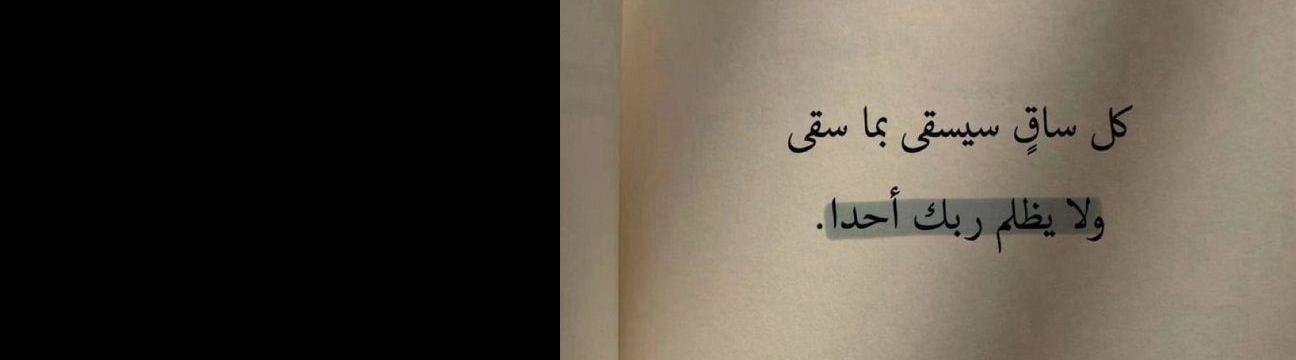 كل ساقٍ سيسقى بما سقى
ولا يظلم ربك أحدا.